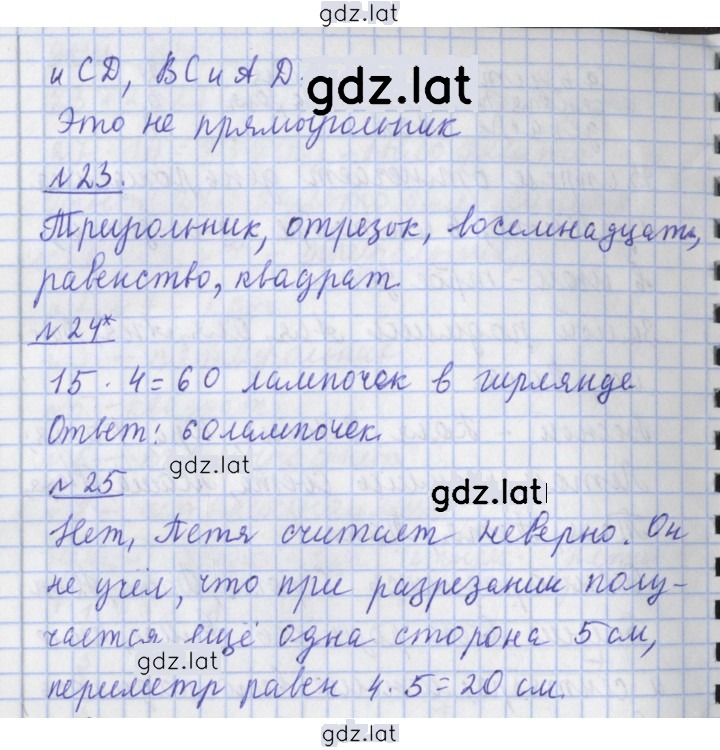 gdz.lat
и CD, BC и AD.
gdz.lat
Это не прямоугольник
№23.
Треугольник, отрезок, восемнадцать,
равенство, квадрат.
№24*
15 · 4 = 60 лампочек в гирлянде
Ответ: 60 лампочек.
gdz.lat
№25
gdz.lat
Нет, Петя считает неверно. Он
не учёл, что при разрезании полу-
чается ещё одна сторона 5 см,
gdz.lat
периметр равен 4 · 5 = 20 см.
gdz.lat